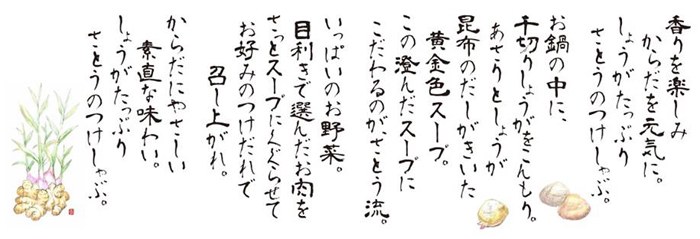 香りを楽しみ
からだを元気に。
しょうがたっぷり
さとうのつけしゃぶ。
お鍋の中に、
千切りしょうがをこんもり。
あさりとしょうが
昆布のだしがきいた
黄金色スープ。
この澄んだスープに
こだわるのが、さとう流。
いっぱいのお野菜。
目利きで選んだお肉を
さっとスープにくぐらせて
お好みのつけだれで
召し上がれ。
からだにやさしい
素直な味わい。
しょうがたっぷり
さとうのつけしゃぶ。